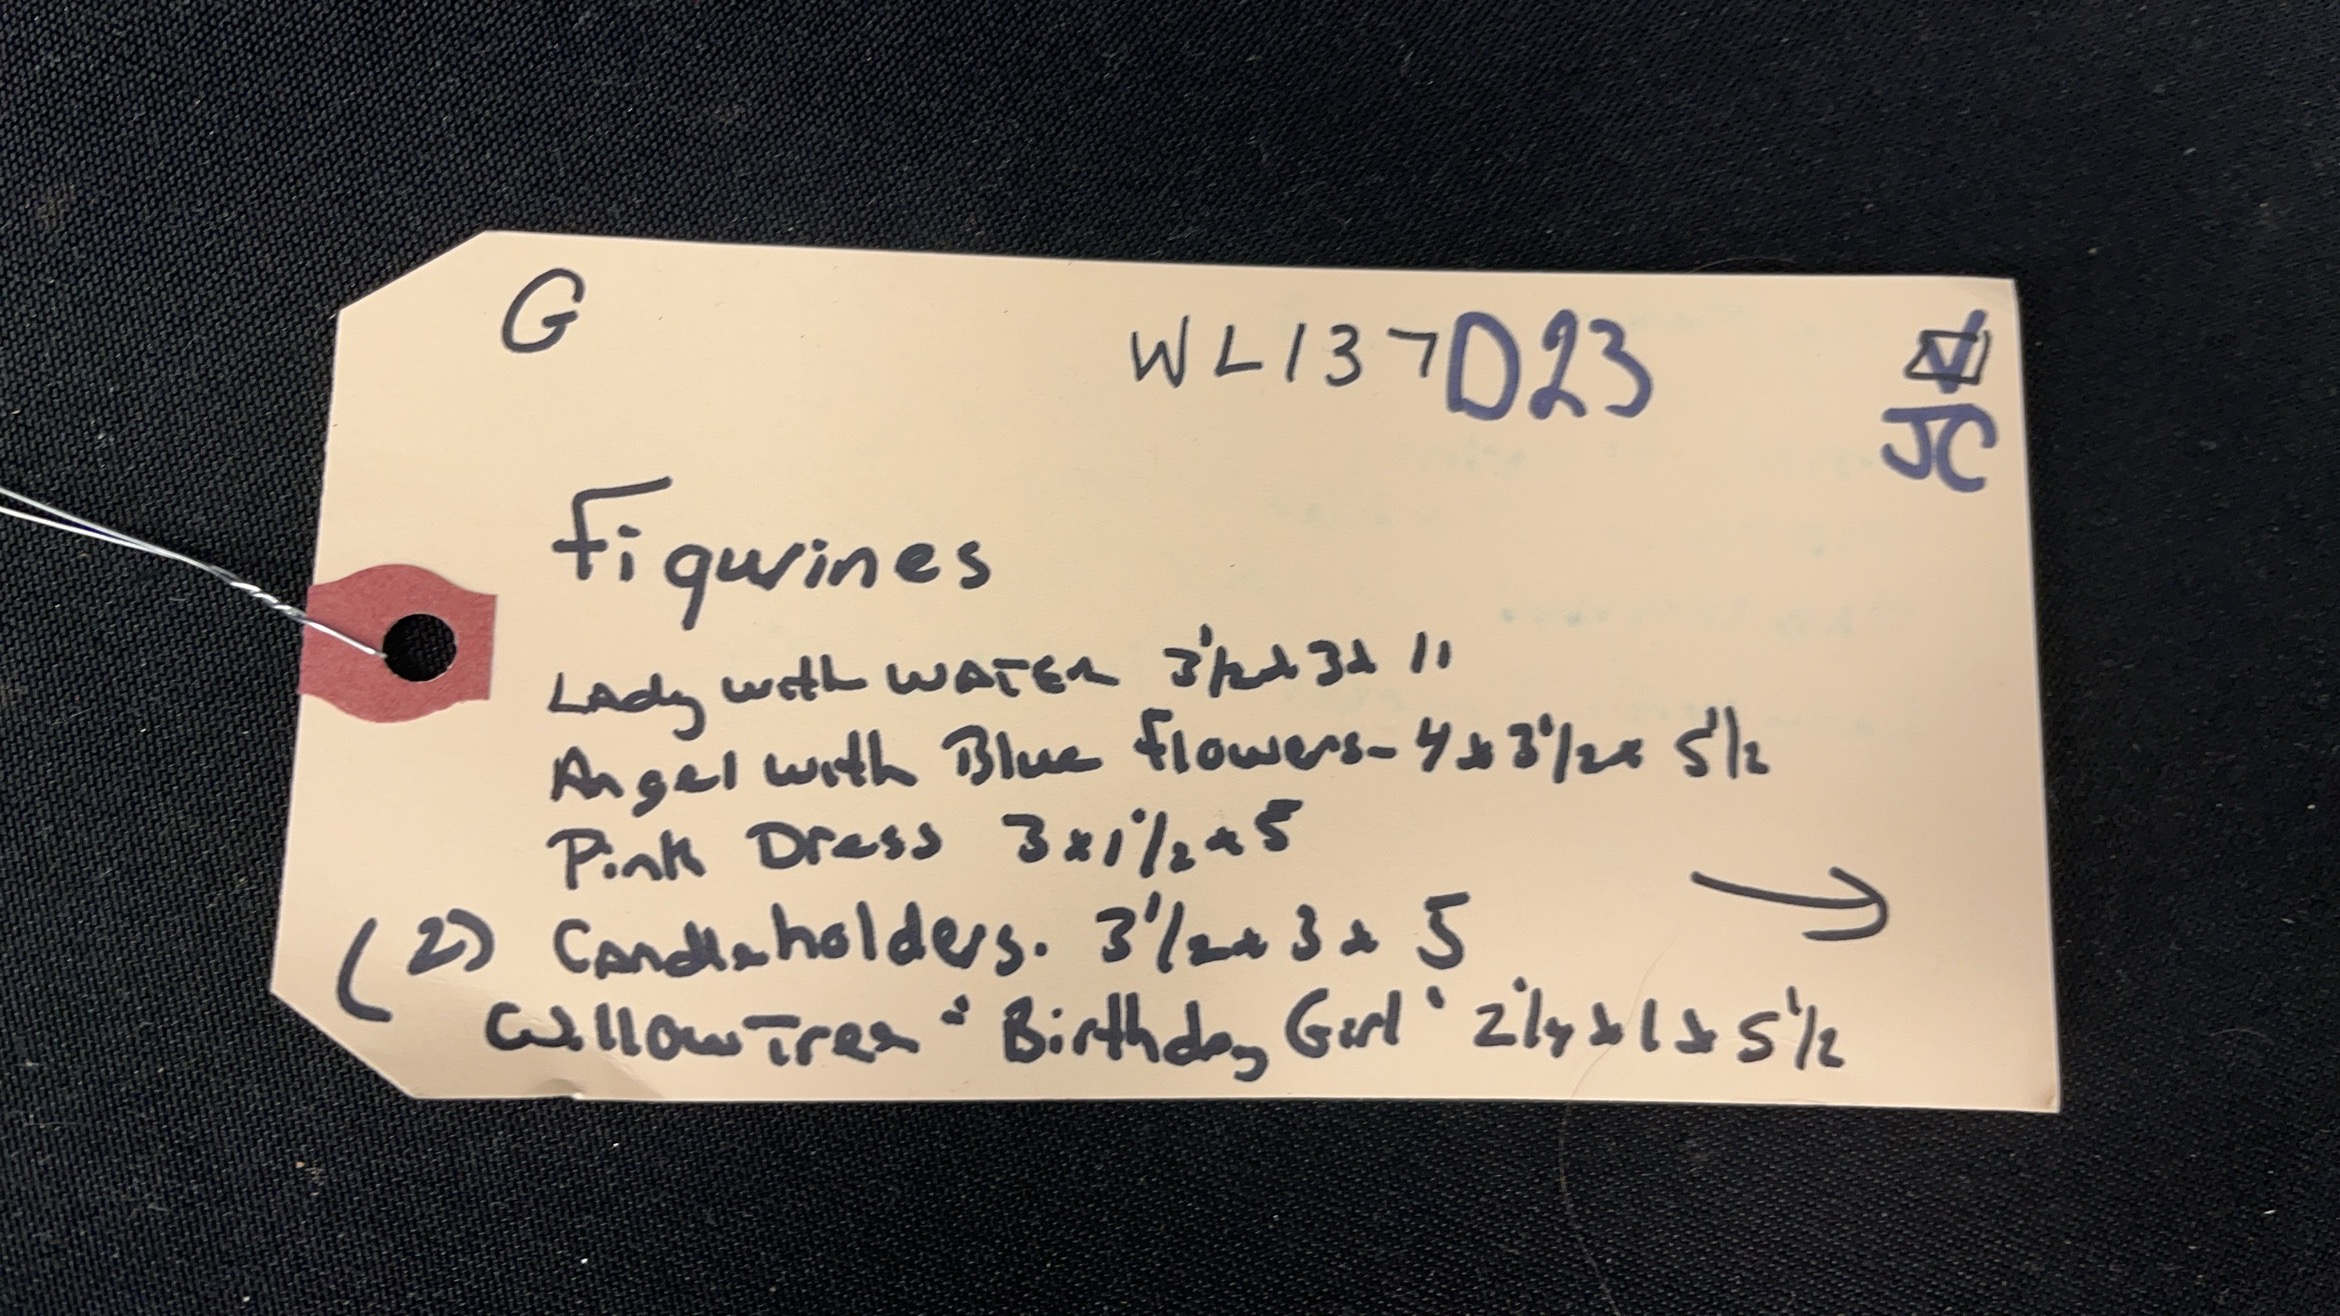 G
WL137 D23
JC
Figurines
Lady with WATER 3 1/2 x 3 x 11
Angel with Blue flowers- 4 x 3 1/2 x 5 1/2
Pink Dress 3 x 1 1/2 x 5
(2) Candleholders. 3 1/2 x 3 x 5
Willow Tree "Birthday Girl" 2 1/4 x 1 x 5 1/2